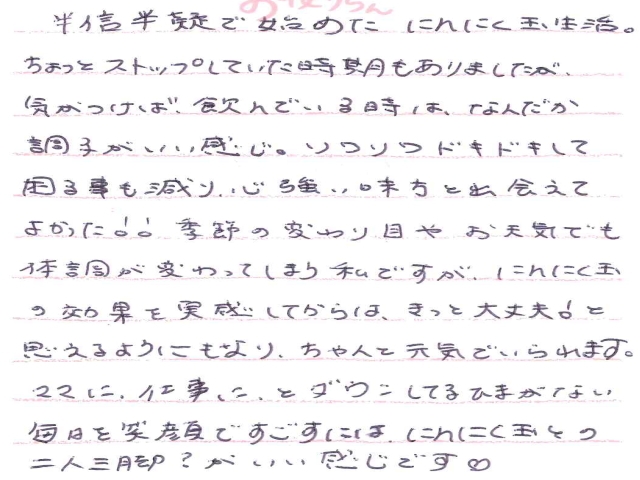 半信半疑で始めた にんにく玉生活。
ちょっとストップしていた時期もありましたが、
気がつけば、飲んでいる時は、なんだか
調子がいい感じ。ソワソワドキドキして
困る事も減り、心強い味方と出会えて
よかった!! 季節の変わり目や お天気でも
体調が変わってしまう私ですが、にんにく玉
の効果を実感してからは、きっと大丈夫!と
思えるようにもなり、ちゃんと元気でいられます。
ママに、仕事に、とダウンしてるひまがない
毎日を笑顔ですごすには、にんにく玉との
二人三脚?がいい感じです♡